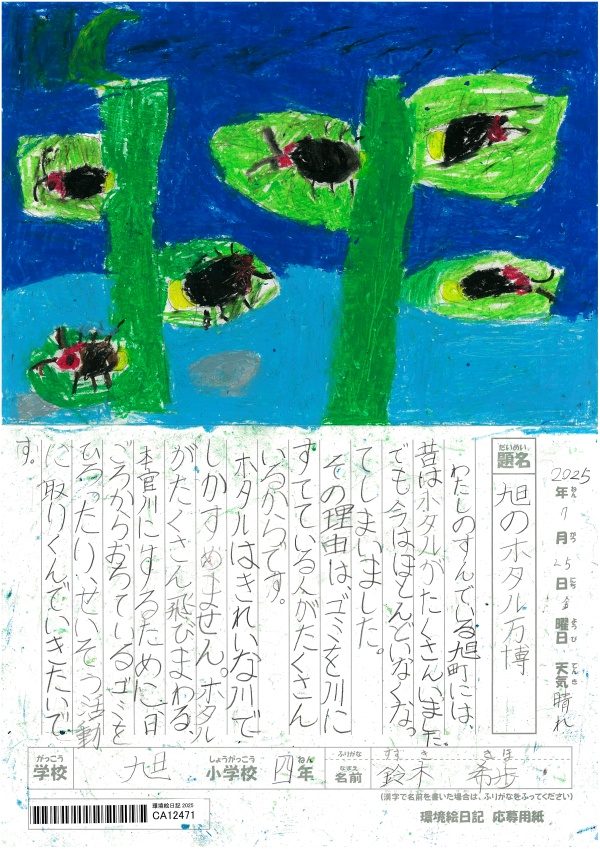 2025年7月25日金曜日 天気晴れ
ねん がつ にち ようび てんき
だいめい
題名 旭のホタル万博
わたしのすんでいる旭町には、
昔はホタルがたくさんいました。
でも今はほとんどいなくなっ
てしまいました。
その理由は、ゴミを川に
すてている人がたくさん
いるからです。
ホタルはきれいな川で
しかすめません。ホタル
がたくさん飛びまわる、
川にするために、一日
ごろからおちているゴミを
ひろったり、せいそう活動
に取りくんでいきたいで
す。
がっこう しょうがっこう ねん ふりがな すずき きほ
学校 旭 小学校 四年 なまえ 名前 鈴木 希歩
(漢字で名前を書いた場合は、ふりがなをふってください)
環境絵日記 2025
CA12471
環境絵日記 応募用紙